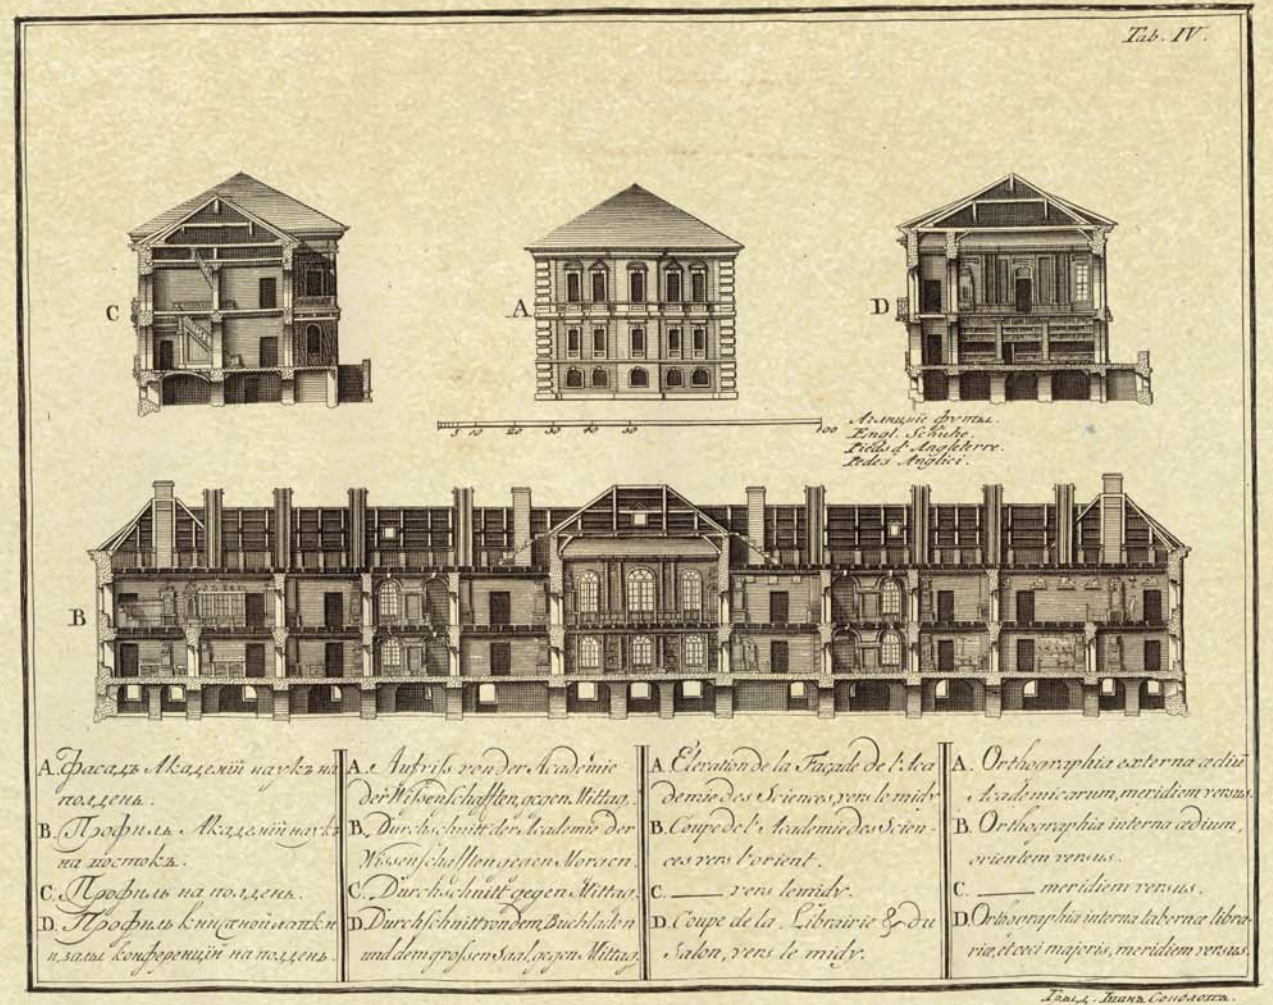 Tab. IV.
C
A
D
5 10 20 30 40 50 100
Аглицкїе футы.
Engl. Schuhe.
Pieds d'Angleterre.
Pedes Anglici.
B
A. Фасадъ Академїи наукъ на
полдень.
B. Профиль Академїи наукъ
на востокъ.
C. Профиль на полдень.
D. Профиль книжной лавки
и залы конференцїи на полдень.
A. Aufriss von der Academie
der Wissenschafften, gegen Mittag.
B. Durchschnitt der Academie der
Wissenschafften gegen Morgen.
C. Durchschnitt gegen Mittag.
D. Durchschnitt von dem Buchladen
und dem grossen Saal, gegen Mittag.
A. Elevation de la Façade de l'Aca
demie des Sciences, vers le midy
B. Coupe de l'Academie des Scien-
ces vers l'orient.
C. ——— vers le midy.
D. Coupe de la Librairie & du
Salon, vers le midy.
A. Orthographia externa ædiū
Academicarum, meridiem versus.
B. Orthographia interna ædium,
orientem versus.
C. ——— meridiem versus.
D. Orthographia interna tabernæ libra-
riæ, et oeci majoris, meridiem versus.
Іванъ Соколовъ.